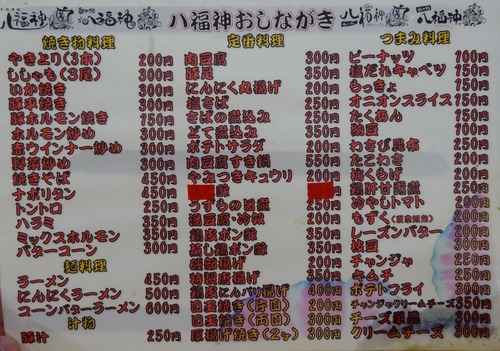 八福神 八福神 八福神おしながき 八福神 八福神
焼き物料理
やきとり(3本) 200円
ししゃも(3尾) 200円
いか焼き 300円
豚平焼き 300円
豚ホルモン焼き 150円
ホルモン炒め 300円
赤ウインナー炒め 300円
野菜炒め 300円
焼きそば 450円
ナポリタン 450円
トントロ 250円
ハラミ 350円
ミックスホルモン 350円
バターコーン 300円
麺料理
ラーメン 450円
にんにくラーメン 500円
コーンバターラーメン 600円
汁物
豚汁 250円
定番料理
肉豆腐 300円
豚足 350円
にんにく丸揚げ 200円
塩さば 250円
さばの煮込み 250円
どて煮込み 300円
ポテトサラダ 200円
肉豆腐すき鍋 550円
やみつきキュウリ 200円
酢
うずらの旨煮 250円
湯豆腐・冷奴 200円
鶏皮ポン酢 250円
蒸し鶏ポン酢 300円
揚げ
揚げ
鶏皮にんにくバリ揚げ 400円
目玉焼き(片目) 200円
目玉焼き(両目) 300円
厚揚げ焼き(2ヶ) 300円
つまみ料理
ピーナッツ 100円
塩だれキャベツ 150円
らっきょ 150円
オニオンスライス 150円
たくあん 150円
納豆 100円
わさび昆布 250円
たこわさ 250円
梅くらげ 200円
鶏肝甘露煮 250円
冷やしトマト 250円
もずく 200円
レーズンバター 200円
枝豆 300円
チャンジャ 250円
キムチ 250円
ポテトフライ 300円
チャンジャクリームチーズ 350円
チーズ
クリームチーズ 300円